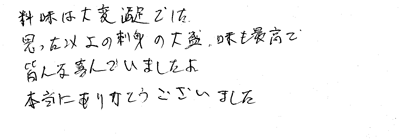 料味は大変満足でした
思った以上の刺身の大盛、味も最高で
皆んな喜んでいましたよ
本当にありがとうございました